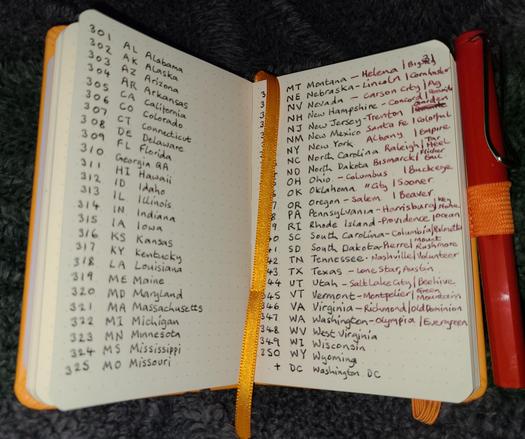 301 AL Alabama
302 AK Alaska
303 AZ Arizona
304 AR Arkansas
305 CA California
306 CO Colorado
307 CT Connecticut
308 DE Delaware
309 FL Florida
310 Georgia GA
311 HI Hawaii
312 ID Idaho
313 IL Illinois
314 IN Indiana
315 IA Iowa
316 KS Kansas
317 KY Kentucky
318 LA Louisiana
319 ME Maine
320 MD Maryland
321 MA Massachusetts
322 MI Michigan
323 MN Minnesota
324 MS Mississippi
325 MO Missouri
MT Montana - Helena | Big
NE Nebraska - Lincoln | Cornhusker
NV Nevada - Carson City |
NH New Hampshire - Concord |
NJ New Jersey - Trenton |
NM New Mexico Santa Fe | Colorful
NY New York Albany | Empire
NC North Carolina Raleigh | Tar Heel
ND North Dakota Bismarck |
OH Ohio - Columbus | Buckeye
OK Oklahoma "City | Sooner
OR Oregon - Salem | Beaver
PA Pennsylvania - Harrisburg | Key
RI Rhode Island - Providence | ocean
SC South Carolina - Columbia | Palmetto
SD South Dakota - Pierre | Mount Rushmore
TN Tennessee - Nashville | Volunteer
43 TX Texas - Lone Star, Austin
44 UT Utah - Salt Lake City | Beehive
345 VT Vermont - Montpelier | Green Mountains
346 VA Virginia - Richmond | Old Dominion
347 WA Washington - Olympia | Evergreen
348 WV West Virginia
349 WI Wisconsin
350 WY Wyoming
+ DC Washington DC